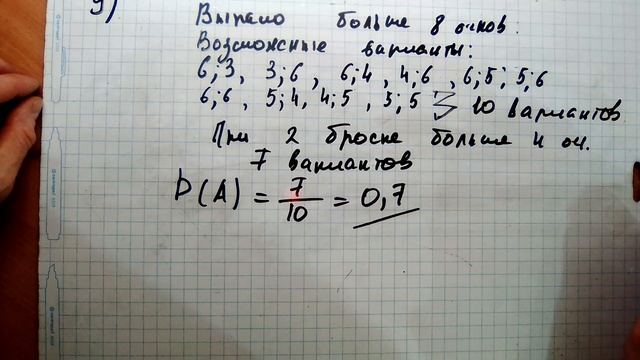 9)
Выпало больше 8 очков:
Возможные варианты:
6;3, 3;6, 6;4, 4;6, 6;5; 5,6
6;6, 5;4, 4;5, 5;5 } 10 вариантов
При 2 броске больше 4 оч.
7 вариантов
P(A) = 7/10 = 0,7